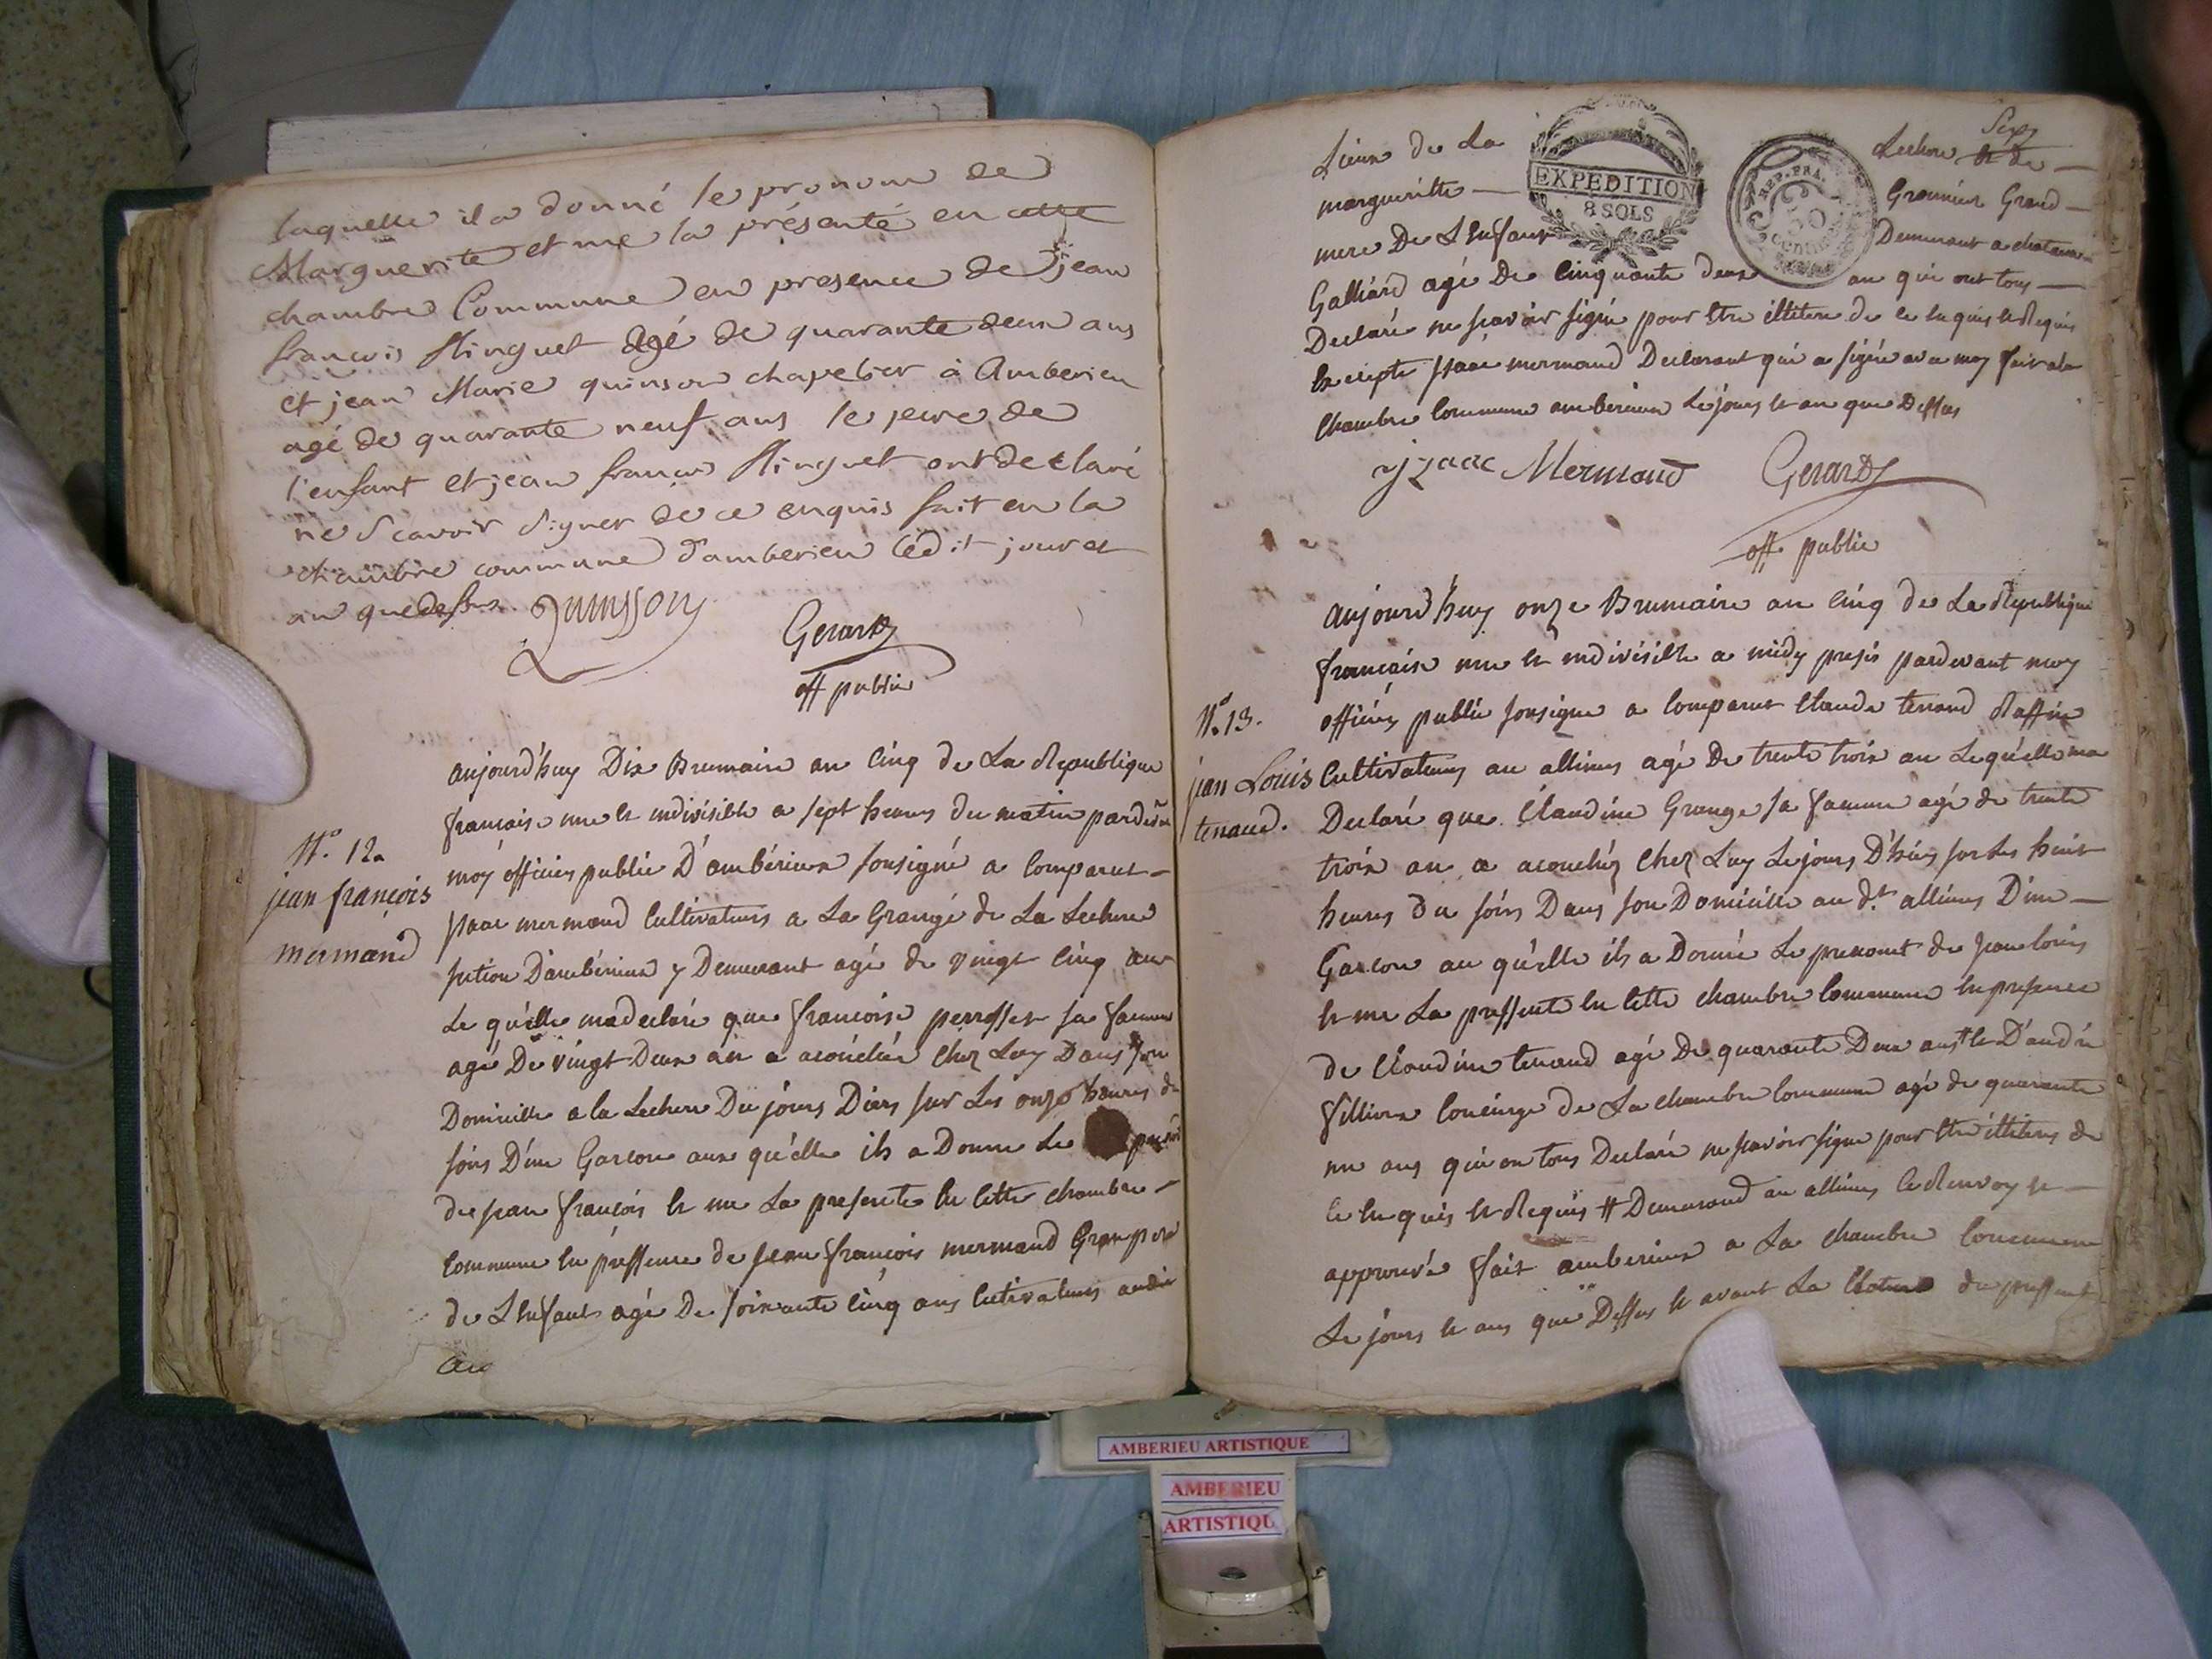 laquelle il a donné le pronom de
Marguerite et me la présenté en cette
chambre Commune en presence de jean
francois Hinguet agé de quarante deux ans
et jean Marie quinson chapelier à Amberieu
agé de quarante neuf ans le pere de
l'enfant et jean francois Hinguet ont declaré
ne Scavoir Signer de ce enquis fait en la
chambre commune d'amberieu ledit jour et
an que dessus. Quinsson
Gerard
off public
N.º 12.
jean françois
mermand
aujourd'huy Dix Brumaire an cinq de La Republique
francaise une et indivisible a sept heures du matin pardevan
moy officier public D'ambérieux sousigné a comparut
Isaac mermand cultivateurs a La Grange de La Lechere
section D'ambérieux y Demeurant agé de vingt cinq ans
Le quelle ma declaré que francoise perosset sa famme
agé De vingt Deux an a acouchée chez Luy Dans son
Domicille a la Lechere Du jours Diers sur Les onze heures du
soirs D'un Garcon aux qu'elle ils a Donne Le
de jean françois et me La presente en cette chambre
commune en pressence de jean françois mermand Grampere
de L'enfant agé De soixante cinq ans cultivateurs audit
au
Lieux de La
Lechere et de
margueritte
Grand
mere De L'enfant
Demeurant a
EXPEDITION
8 SOLS
REP. FRA.
50
Galliard agé De cinquante deux an qui ont tous
Declaré ne scavoir signé pour etre illitere de ce enquis et Requis
Excepte Isaac mermand Declarant qui a signé avec moy fait a la
chambre Commune amberieux Le jours et an que Dessus
yzaac Mermand Gerard
off. public
N.º 13.
jean Louis
tenand.
aujourd'huy onze Brumaire an cinq de La Republique
francaise une et indivisible a midy presis pardevant moy
officiers public sousigne a comparut Claude tenand
Cultivateurs au allimes agé De trente trois an Lequelle ma
Declaré que Claudine Grange sa famme agé de trente
trois an a acouchéz chez Luy Le jours D'hiers sur Les huit
heures du soirs Dans son Domicille au d.t allimes D'un
Garcon au qu'elle ils a Donné Le prenomt de jean louis
et me La pressente en cette chambre commune en presence
de Claudine tenand agé De quarante Deux ans # et D'andré
concierge de La chambre Commune agé de quarante
un ans qui on tous Declaré ne scavoir signe pour etre illiteres de
ce enquis et Requis # Demeurand au allimes Le Renvoy
approuvé fait amberieux a La chambre commune
Le jours et ans que Dessus et avant La Cloture du pressent
AMBERIEU ARTISTIQUE
AMBERIEU
ARTISTIQU